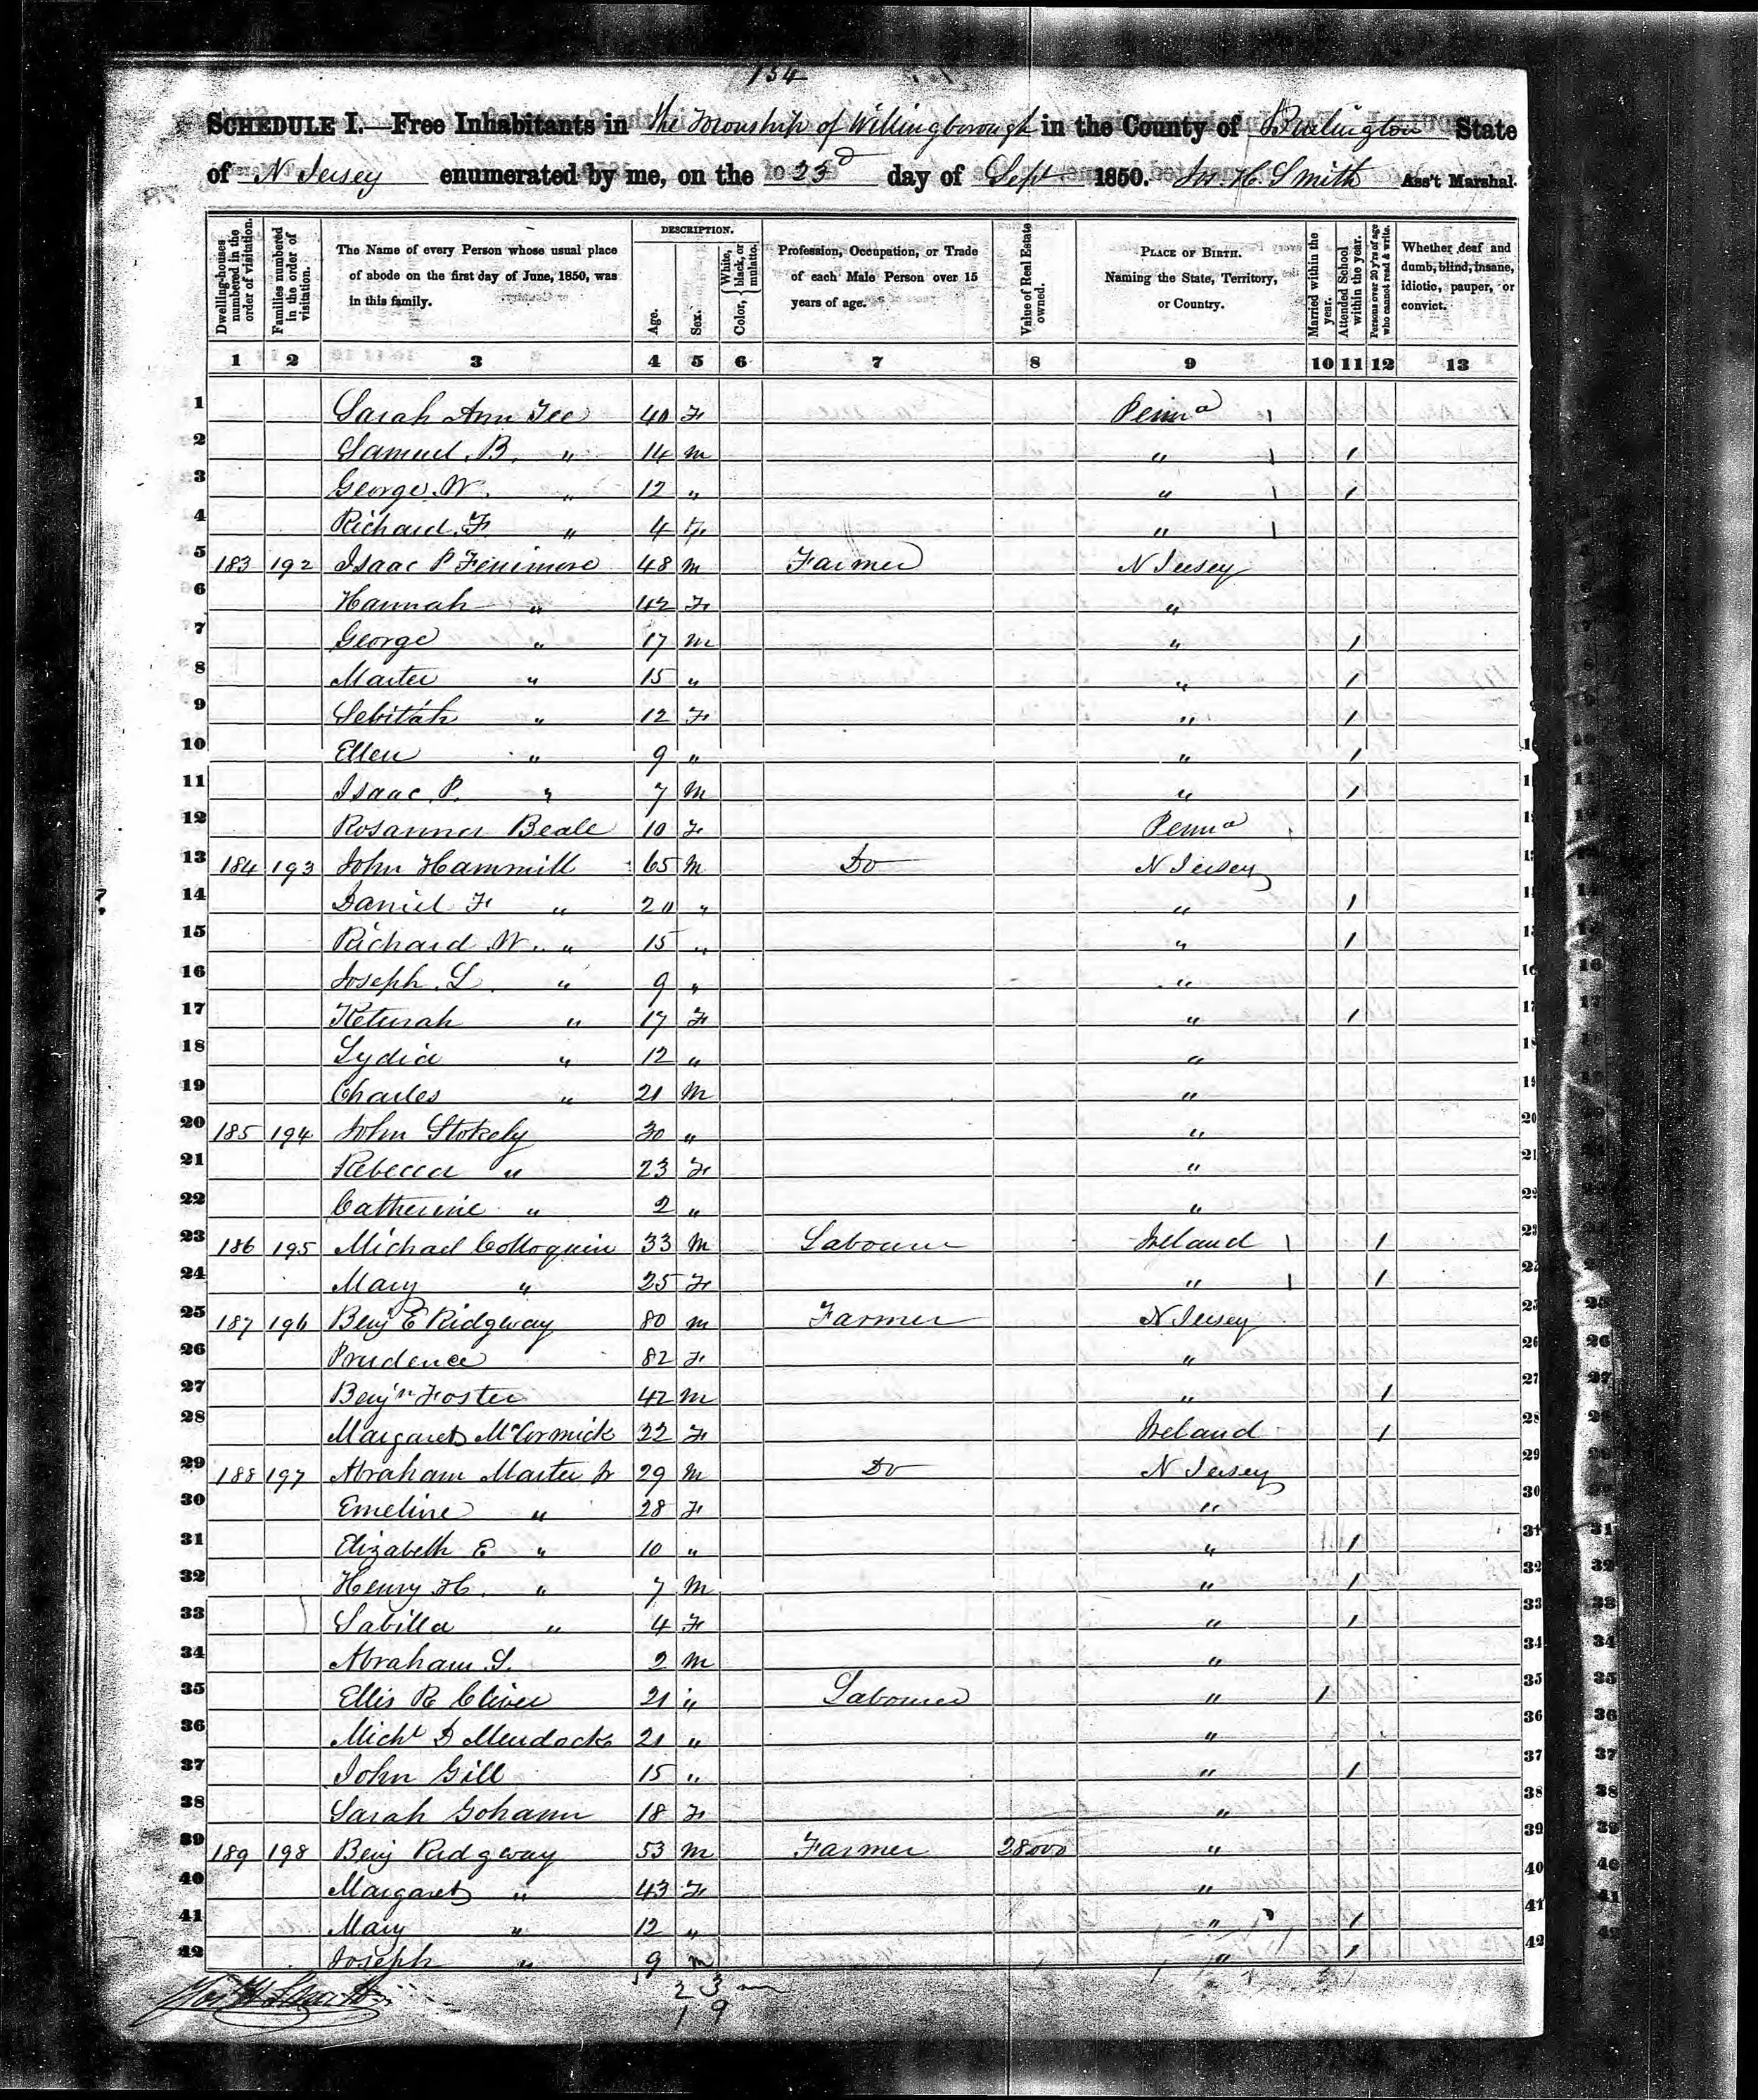 154
SCHEDULE I.—Free Inhabitants in the Township of Willingborough in the County of Burlington State
of N Jersey enumerated by me, on the 23d day of Sept 1850. Jos. H. Smith Ass't Marshal.
Dwelling-houses numbered in the order of visitation. Families numbered in the order of visitation. The Name of every Person whose usual place of abode on the first day of June, 1850, was in this family. DESCRIPTION. Age. Sex. Color, { White, black, or mulatto. Profession, Occupation, or Trade of each Male Person over 15 years of age. Value of Real Estate owned. PLACE OF BIRTH. Naming the State, Territory, or Country. Married within the year. Attended School within the year. Persons over 20 y'rs of age who cannot read & write. Whether deaf and dumb, blind, insane, idiotic, pauper, or convict.
1 2 3 4 5 6 7 8 9 10 11 12 13
1 Sarah Ann Tee 40 F Penna 1
2 Samuel B. " 14 m " 1 1
3 George W. " 12 " " 1 1
4 Richard F. " 4 F " 1
5 183 192 Isaac P Fenimore 48 m Farmer N Jersey
6 Hannah " 42 F "
7 George " 17 m " 1
8 Marter " 15 " " 1
9 Sebitah " 12 F " 1
10 Ellen " 9 " " 1
11 Isaac P. " 7 M " 1
12 Rosanna Beale 10 F Penna
13 184 193 John Hammill 65 M Do N Jersey
14 Daniel F " 20 " " 1
15 Richard W. " 15 " " 1
16 Joseph L. " 9 " "
17 Keturah " 17 F " 1
18 Lydia " 12 " "
19 Charles " 21 M "
20 185 194 John Stokely 30 " "
21 Rebecca " 23 F "
22 Catherine " 2 " "
23 186 195 Michael Colloquin 33 M Labourer Ireland 1 1
24 Mary " 25 F " 1 1
25 187 196 Benj E Ridgway 80 m Farmer N Jersey
26 Prudence 82 F "
27 Benjn Foster 42 m " 1
28 Margaret McCormick 22 F Ireland 1
29 188 197 Abraham Marter Jr 29 M Do N Jersey
30 Emeline " 28 F "
31 Elizabeth E " 10 " " 1
32 Henry H. " 7 M " 1
33 Sabilla " 4 F " 1
34 Abraham S. 2 M "
35 Ellis R Cliver 21 " Labourer " 1
36 Michl D Murdock 21 " "
37 John Gill 15 " " 1
38 Sarah Gohann 18 F "
39 189 198 Benj Ridgway 53 M Farmer 28000 "
40 Margaret " 43 F "
41 Mary " 12 " " 1
42 Joseph " 9 m " 1
23 m
19